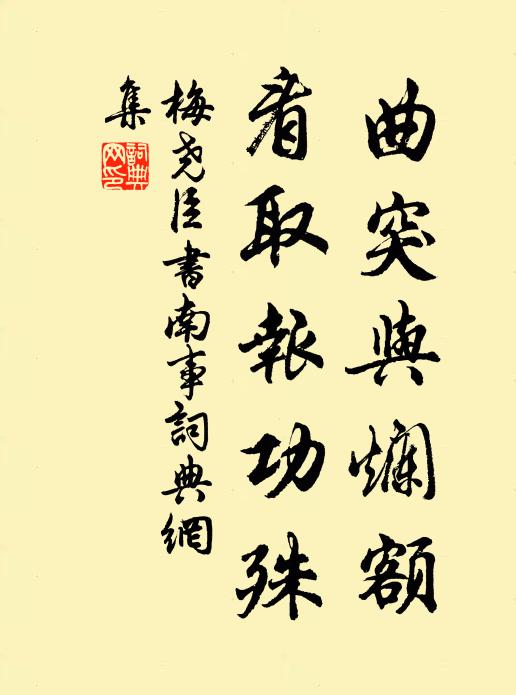 曲突與爛額
看取報功殊
梅堯臣書南事詞典網
集
詞典網印